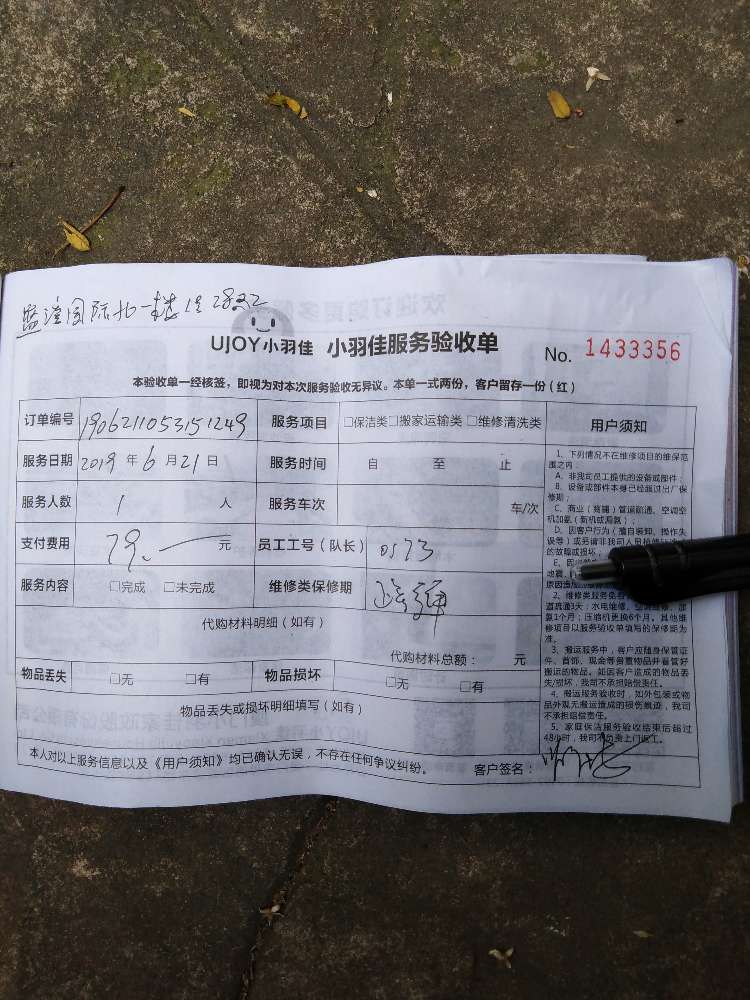 国际北一楼店2832
UJOY小羽佳 小羽佳服务验收单 No. 1433356
本验收单一经核签，即视为对本次服务验收无异议。本单一式两份，客户留存一份（红）
订单编号 190621105315​1249 服务项目 □保洁类□搬家运输类□维修清洗类
服务日期 2019 年 6 月 21 日 服务时间 自 至 止
服务人数 1 人 服务车次 车/次
支付费用 79.— 元 员工工号（队长） 0573
服务内容 □完成 □未完成 维修类保修期
代购材料明细（如有）
代购材料总额： 元
物品丢失 □无 □有 物品损坏 □无 □有
物品丢失或损坏明细填写（如有）
本人对以上服务信息以及《用户须知》均已确认无误，不存在任何争议纠纷。 客户签名：
用户须知
1、下列情况不在维修项目的维保范
围之内：
A、非我司员工提供的设备或部件；
B、设备或部件本身已经超过出厂保
修期；
C、商业（商铺）管道疏通、空调空
机加氨（新机或漏氨）；
D、因客户行为（擅自装卸、操作失
误等）或另请非我司人员
的故障或损坏
E、
地震、
原因造成
2、维修类服务免
道疏通3天；水电维修、空调
氨1个月；压缩机更换6个月。其他维
修项目以服务验收单填写的保修期为
准。
3、搬运服务中，客户应随身保管证
件、首饰、现金等贵重物品并看管好
搬运的物品。如因客户造成的物品丢
失/损坏，我司不承担赔偿责任。
4、搬运服务验收时，如外包装或物
品外观无搬运造成的损伤痕迹，我司
不承担赔偿责任。
5、家庭保洁服务验收结束后超过
48小时，我司不负责上门返工。